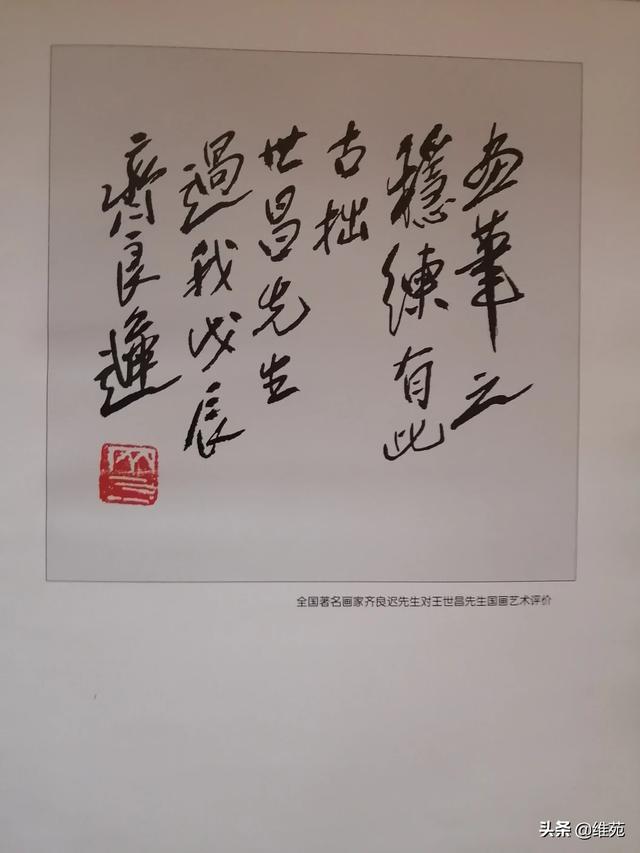 畫筆之
穩練有此
古拙
世昌先生
過我戊辰
齊良遲
全国著名画家齐良迟先生对王世昌先生国画艺术评价
头条 @维苑